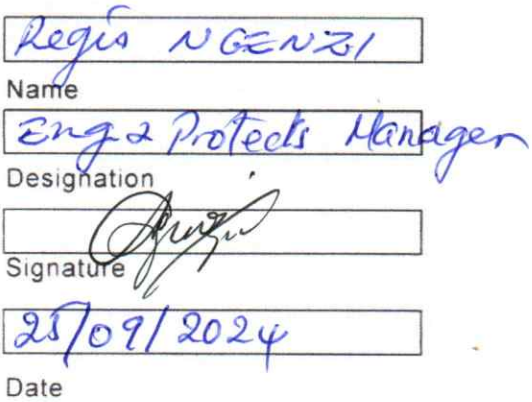 Regis NGENZI
Name
Eng & Protects Manager
Designation
Signature
25/09/2024
Date